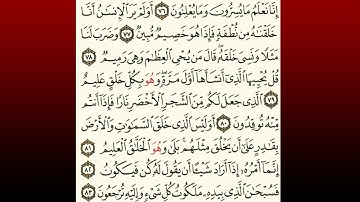 إِنَّا نَعْلَمُ مَا يُسِرُّونَ وَمَا يُعْلِنُونَ ﴿٧٦﴾ أَوَلَمْ يَرَ ٱلْإِنسَٰنُ أَنَّا
خَلَقْنَٰهُ مِن نُّطْفَةٍ فَإِذَا هُوَ خَصِيمٌ مُّبِينٌ ﴿٧٧﴾ وَضَرَبَ لَنَا
مَثَلًا وَنَسِىَ خَلْقَهُۥ قَالَ مَن يُحْىِ ٱلْعِظَٰمَ وَهِىَ رَمِيمٌ ﴿٧٨﴾
قُلْ يُحْيِيهَا ٱلَّذِىٓ أَنشَأَهَآ أَوَّلَ مَرَّةٍ وَهُوَ بِكُلِّ خَلْقٍ عَلِيمٌ
﴿٧٩﴾ ٱلَّذِى جَعَلَ لَكُم مِّنَ ٱلشَّجَرِ ٱلْأَخْضَرِ نَارًا فَإِذَآ أَنتُم
مِّنْهُ تُوقِدُونَ ﴿٨٠﴾ أَوَلَيْسَ ٱلَّذِى خَلَقَ ٱلسَّمَٰوَٰتِ وَٱلْأَرْضَ
بِقَٰدِرٍ عَلَىٰٓ أَن يَخْلُقَ مِثْلَهُم بَلَىٰ وَهُوَ ٱلْخَلَّٰقُ ٱلْعَلِيمُ ﴿٨١﴾
إِنَّمَآ أَمْرُهُۥٓ إِذَآ أَرَادَ شَيْـًٔا أَن يَقُولَ لَهُۥ كُن فَيَكُونُ ﴿٨٢﴾
فَسُبْحَٰنَ ٱلَّذِى بِيَدِهِۦ مَلَكُوتُ كُلِّ شَىْءٍ وَإِلَيْهِ تُرْجَعُونَ ﴿٨٣﴾